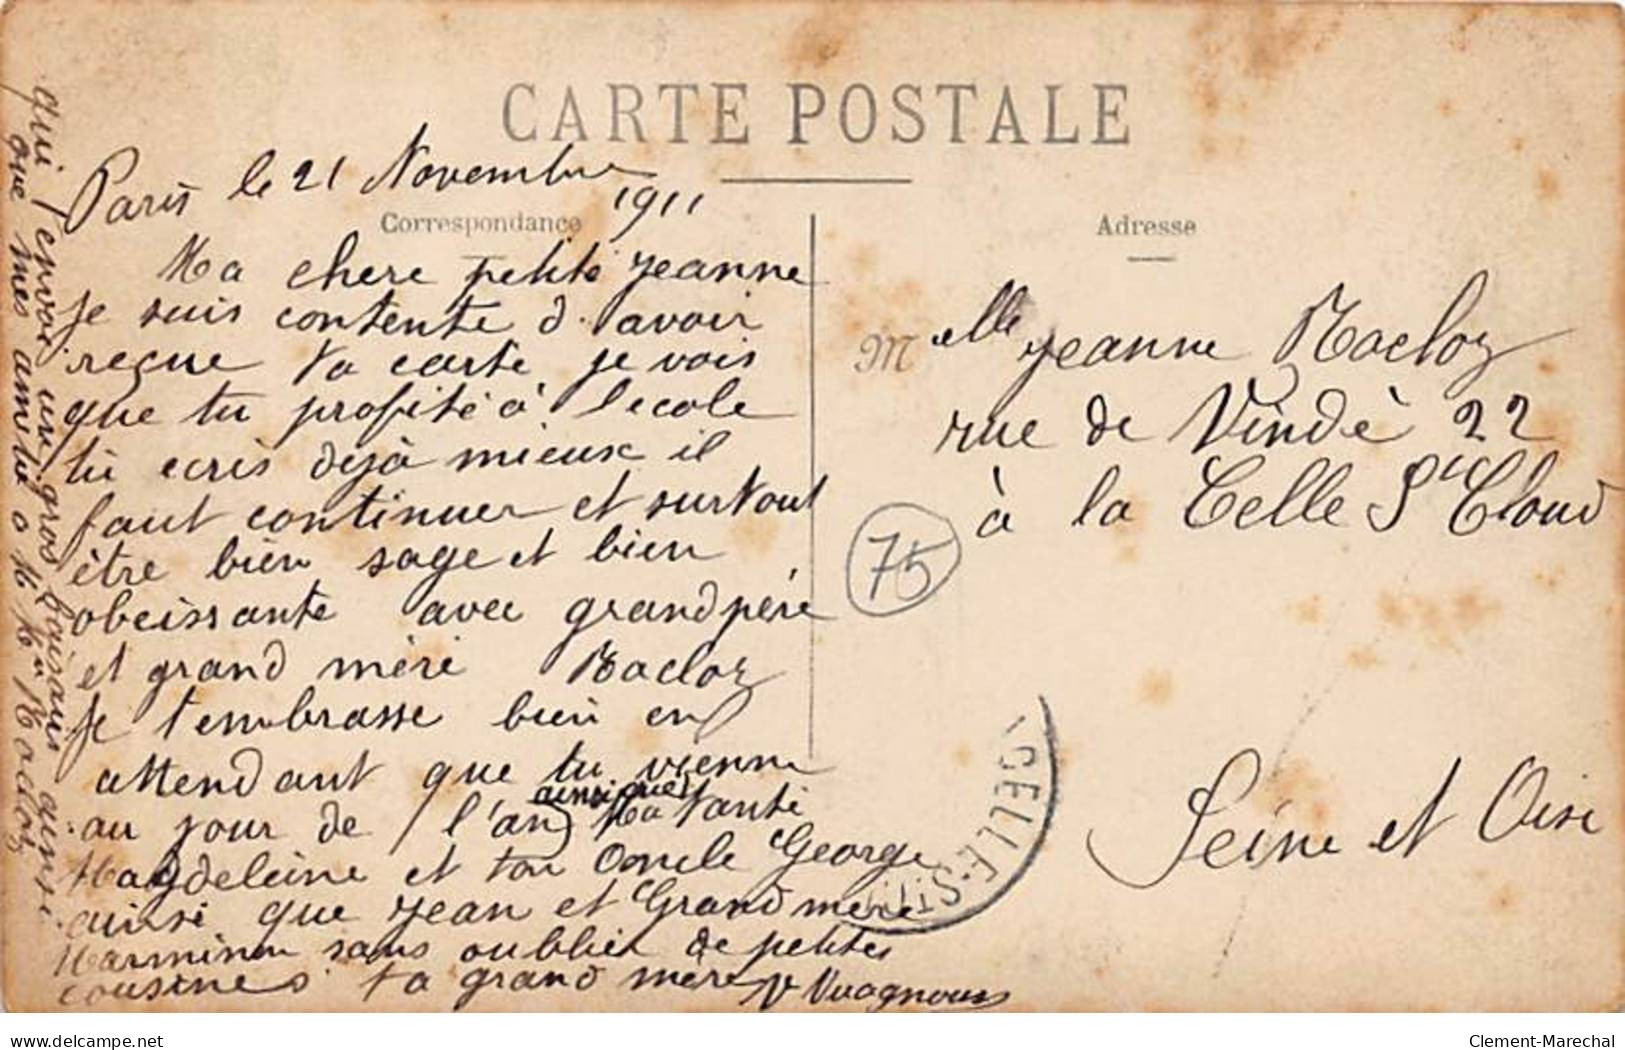 CARTE POSTALE
Paris le 21 Novembre
1911
Correspondance
Ma chere petite Jeanne
je suis contente d'avoir
reçue ta carte je vois
que tu profite à l'ecole
tu ecris dejà mieux il
faut continuer et surtout
être bien sage et bien
obeissante avec grand père
et grand mère Macloz
Je t'embrasse bien en
attendant que tu vienne
au jour de l'an ainsi que Ma tante
Magdeleine et ton Oncle George
ainsi que Jean et Grand mère
sans oublier de petites
cousines ta grand mère
qui t'envoie un gros baisair ainsi
que mes amitié a M Mme Macloz
Adresse
Melle Jeanne Macloz
rue de Vindè 22
à la Celle St Cloud
75
Seine et Oise
CELLE-ST
delcampe.net
Clement-Marechal